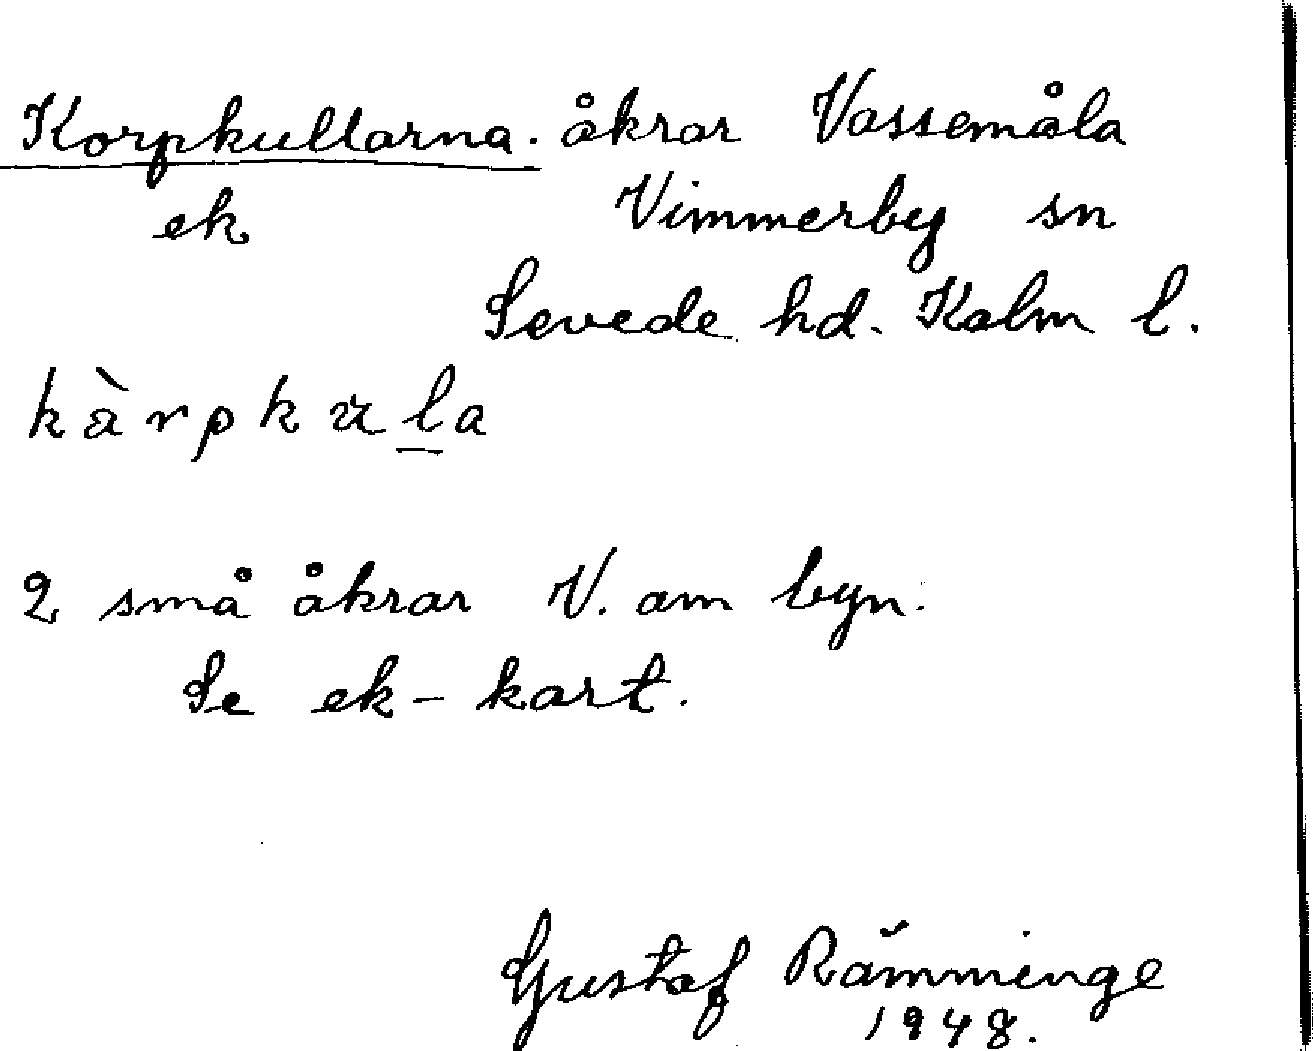 Korpkullarna. åkrar Vassemåla
ek Vimmerby sn
Sevede hd. Kalm l.
kàrpkula
2 små åkrar V. om byn.
Se ek-kart.
Gustaf Rämminge
1948.